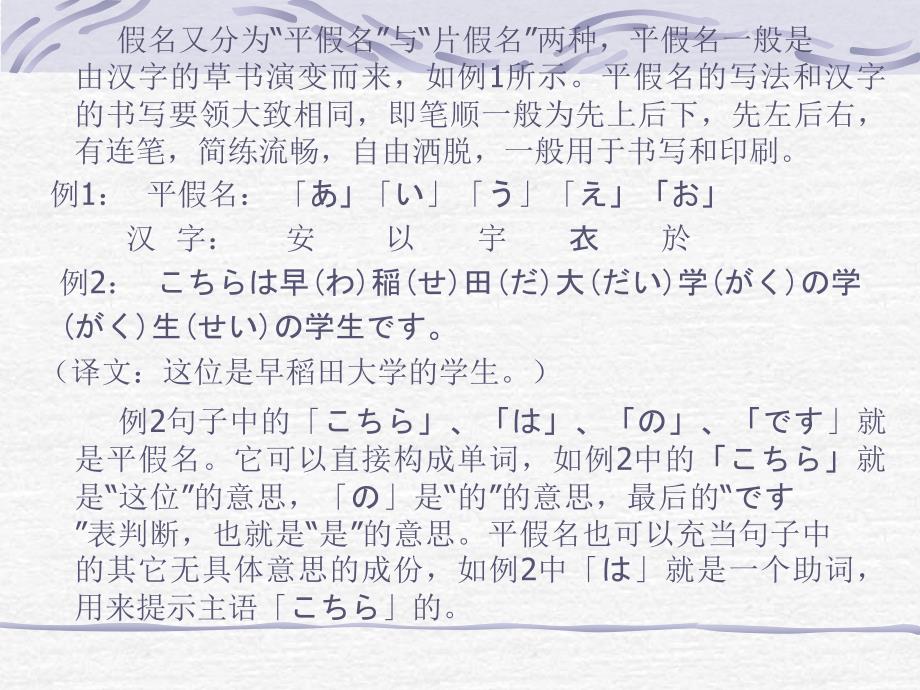 假名又分为“平假名”与“片假名”两种，平假名一般是
由汉字的草书演变而来，如例1所示。平假名的写法和汉字
的书写要领大致相同，即笔顺一般为先上后下，先左后右，
有连笔，简练流畅，自由洒脱，一般用于书写和印刷。
例1： 平假名：「あ」「い」「う」「え」「お」
汉 字： 安 以 宇 衣 於
例2： こちらは早(わ)稲(せ)田(だ)大(だい)学(がく)の学
(がく)生(せい)の学生です。
（译文：这位是早稻田大学的学生。）
例2句子中的「こちら」、「は」、「の」、「です」就
是平假名。它可以直接构成单词，如例2中的「こちら」就
是“这位”的意思，「の」是“的”的意思，最后的“です
”表判断，也就是“是”的意思。平假名也可以充当句子中
的其它无具体意思的成份，如例2中「は」就是一个助词，
用来提示主语「こちら」的。